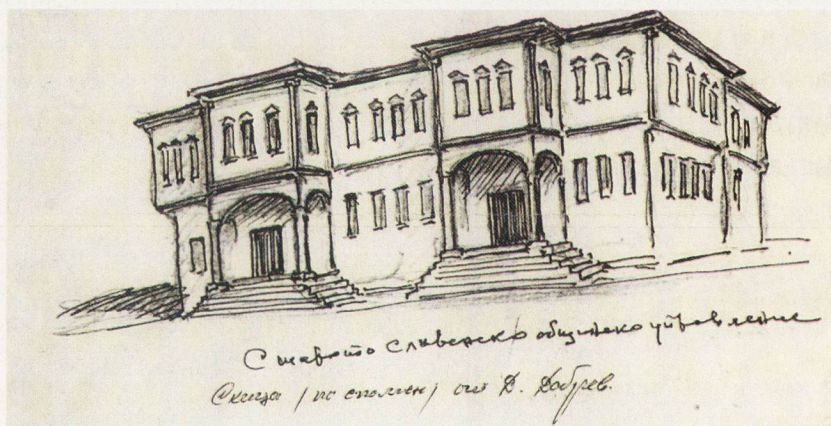 Старото Сливенско общинско управление
Скица /по спомен/ от Д. Добрев.